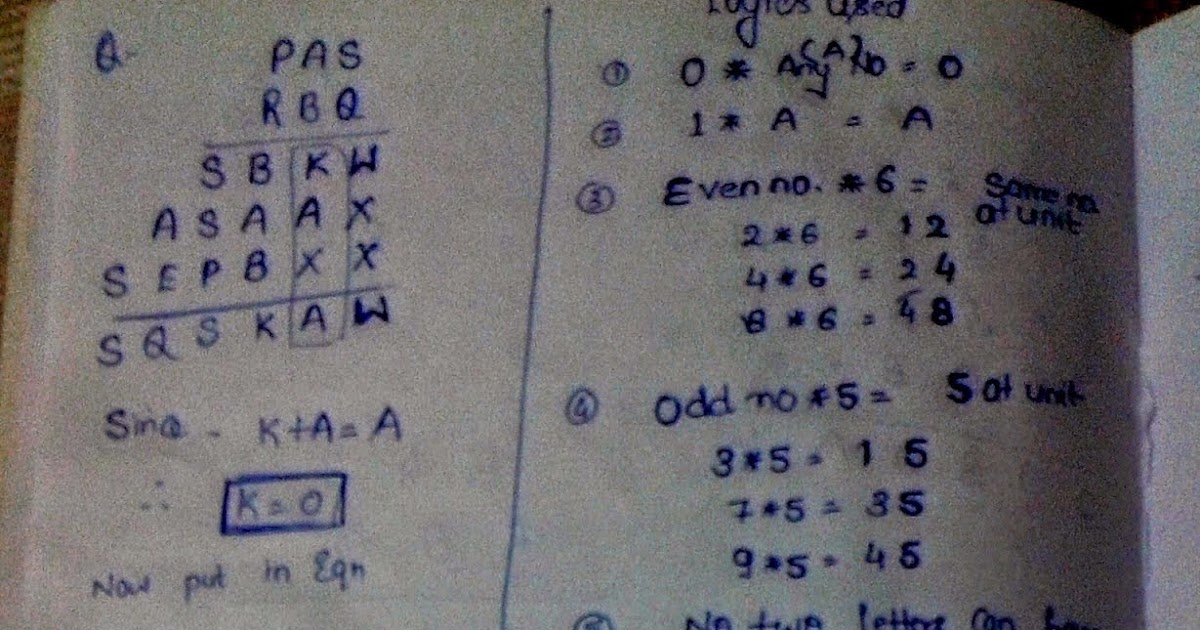 Q- PAS
RBQ
S B K W
A S A A X
S E P B X X
S Q S K A W
Since - K+A=A
∴ K=0
Now put in Eqn
Logics used
① 0 * Any (A) No = 0
② 1 * A = A
③ Even no. * 6 = Same no. at unit
2*6 = 12
4*6 = 24
8*6 = 48
④ Odd no * 5 = 5 at unit
3*5 = 15
7*5 = 35
9*5 = 45
⑤ No two letters can